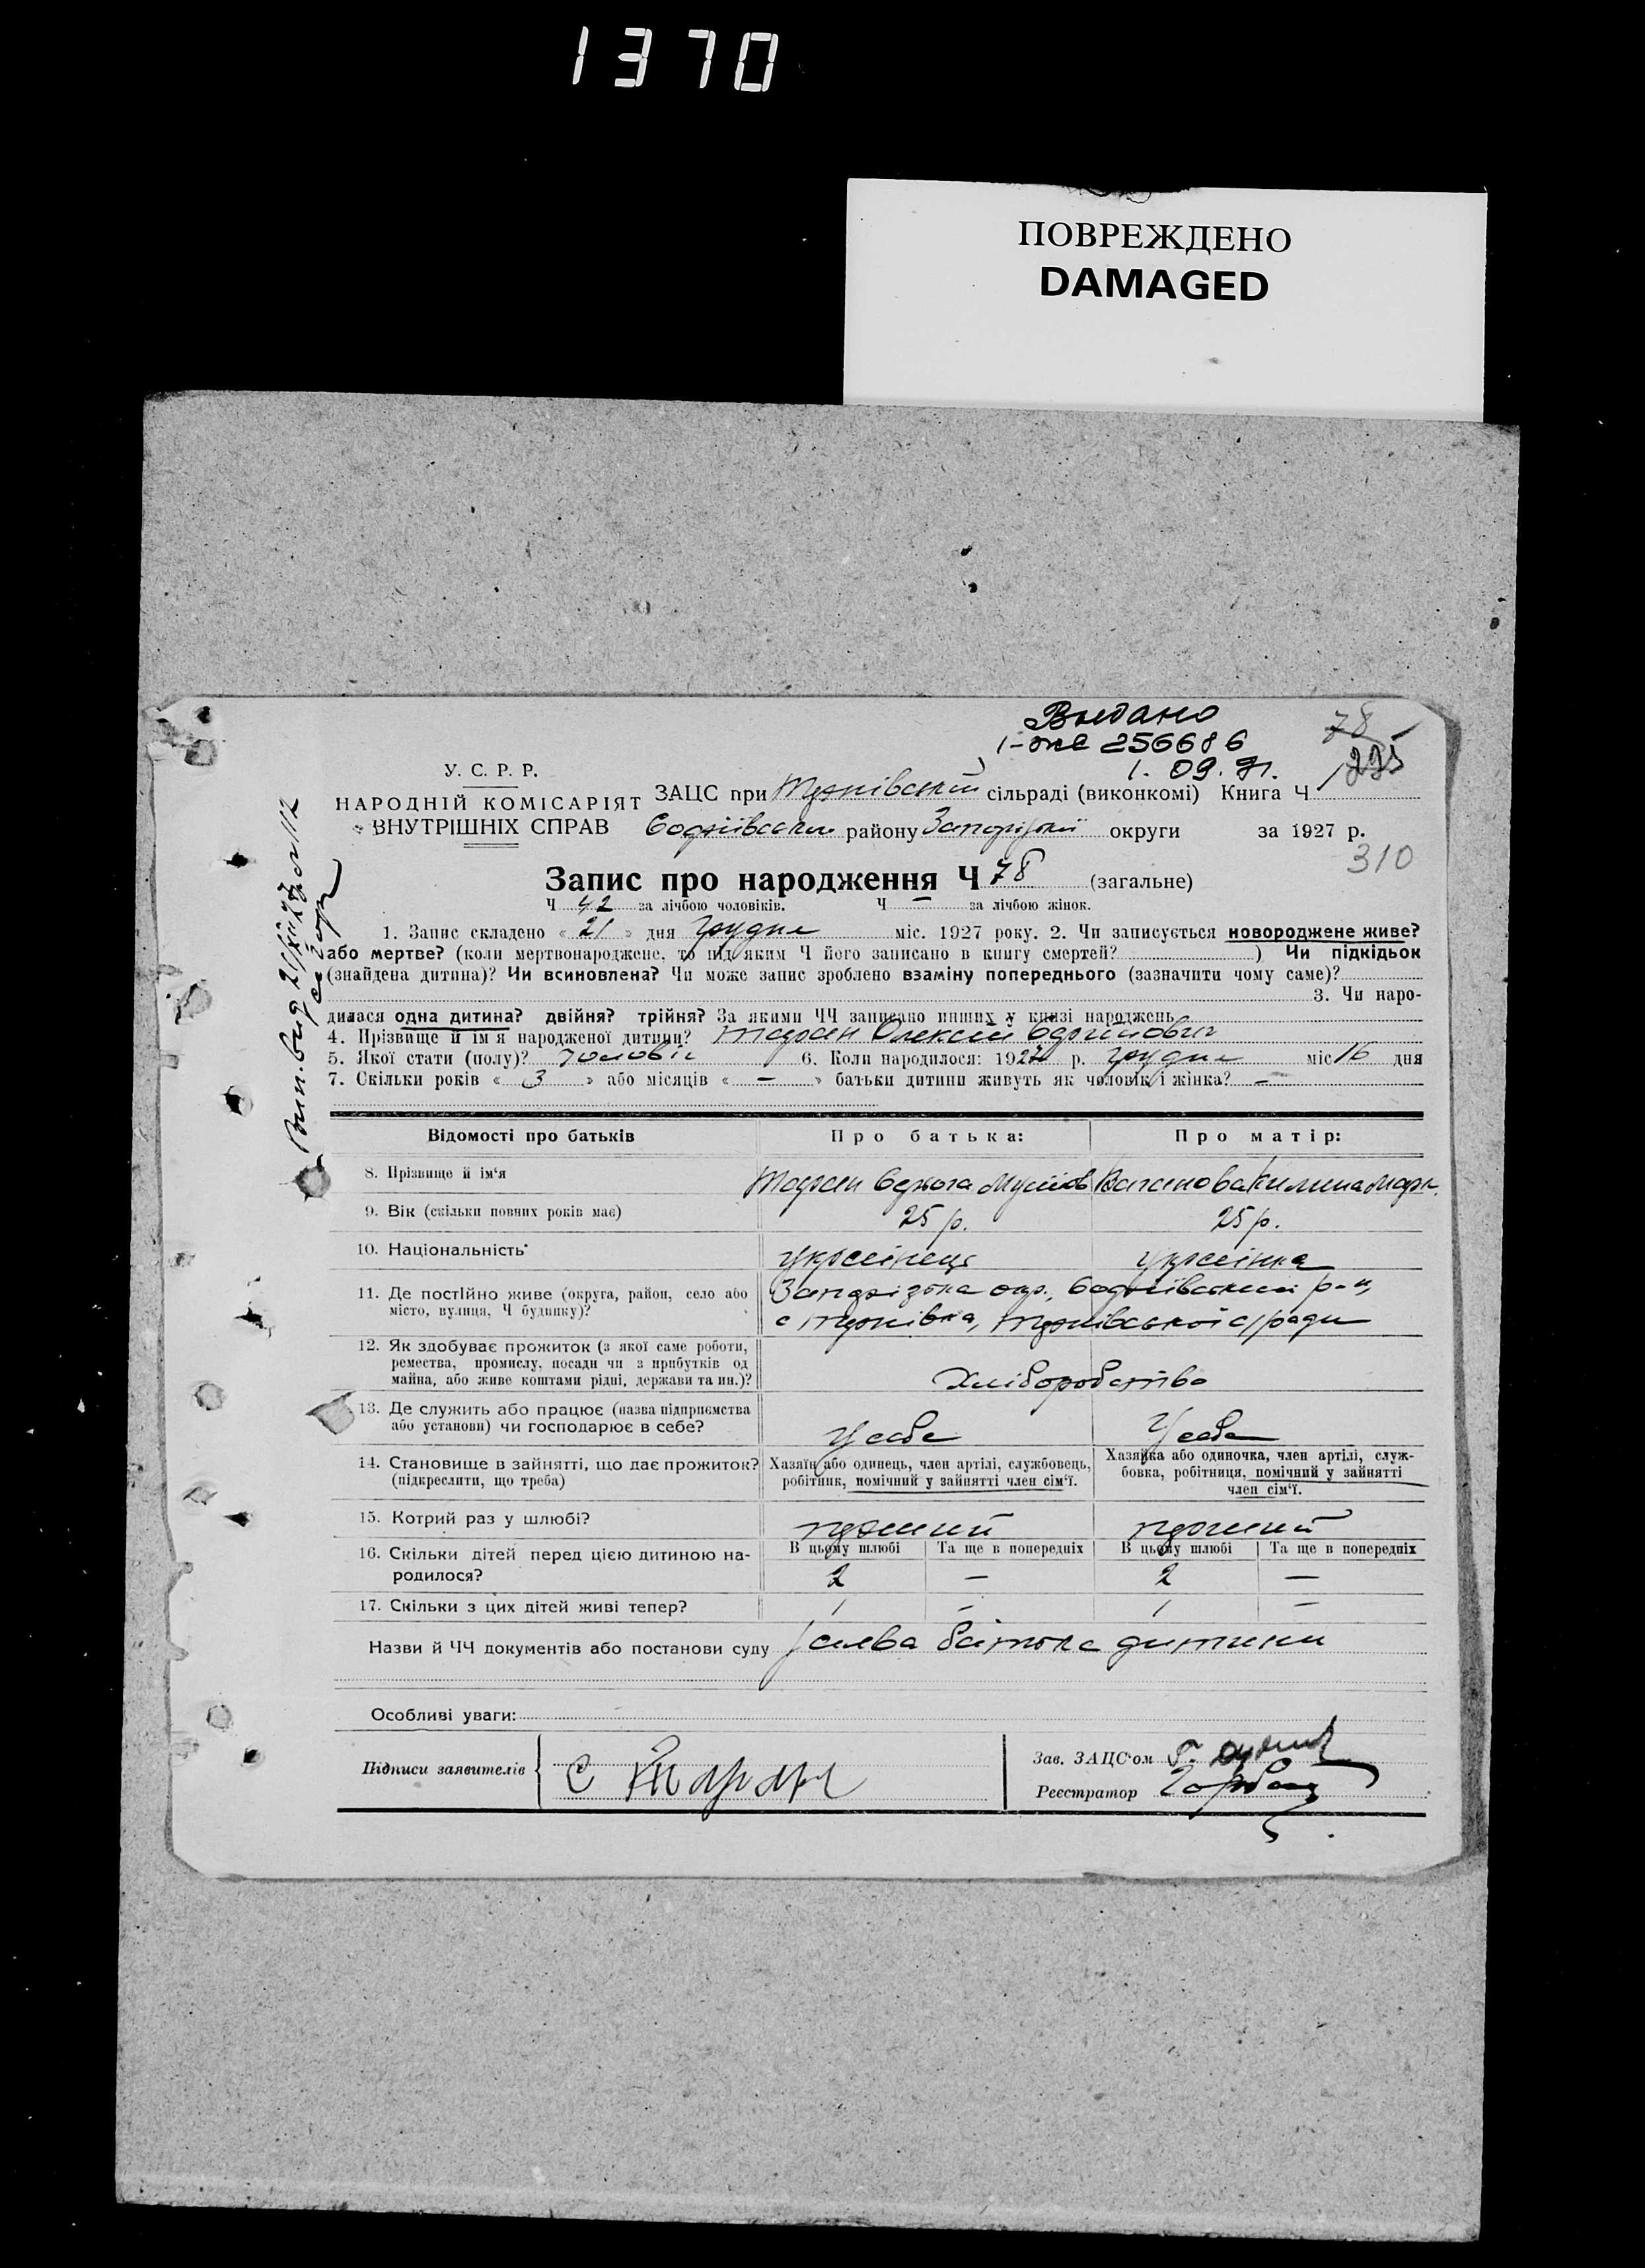 1370
ПОВРЕЖДЕНО
DAMAGED
Выдано
I-жс 256686
1. 09. 91.
78
310
У. С. Р. Р.
НАРОДНІЙ КОМІСАРІЯТ
ВНУТРІШНІХ СПРАВ
ЗАЦС при сільраді (виконкомі) Книга Ч 1
району Запорізької округи за 1927 р.
Запис про народження Ч 78 (загальне)
Ч 42 за лічбою чоловіків. Ч — за лічбою жінок.
1. Запис складено « 21 » дня грудня міс. 1927 року. 2. Чи записується новороджене живе?
або мертве? (коли мертвонароджене, то під яким Ч його записано в книгу смертей? ) Чи підкідьок
(знайдена дитина)? Чи всиновлена? Чи може запис зроблено взаміну попереднього (зазначити чому саме)?
3. Чи наро-
дилася одна дитина? двійня? трійня? За якими ЧЧ записано инших у книзі народжень
4. Прізвище й ім'я народженої дитини? Таран Олексій
5. Якої стати (полу)? чоловіч 6. Коли народилося: 1927 р. грудня міс 16 дня
7. Скільки років « 3 » або місяців « — » батьки дитини живуть як чоловік і жінка? —
Відомості про батьків Про батька: Про матір:
8. Прізвище й ім'я Таран
9. Вік (скільки повних років має) 25 р. 25 р.
10. Національність украінець украінка
11. Де постійно живе (округа, район, село або
місто, вулиця, Ч будинку)?
Запорізька окр., р-н,
с/ради
12. Як здобуває прожиток (з якої саме роботи,
ремества, промислу, посади чи з прибутків од
майна, або живе коштами рідні, держави та ин.)?
Хліборобство
13. Де служить або працює (назва підприємства
або установи) чи господарює в себе?
У себе У себе
14. Становище в зайнятті, що дає прожиток?
(підкреслити, що треба)
Хазяїн або одинець, член артілі, службовець,
робітник, помічний у зайнятті член сім'ї.
Хазяйка або одиночка, член артілі, служ-
бовка, робітниця, помічний у зайнятті
член сім'ї.
15. Котрий раз у шлюбі? перший перший
16. Скільки дітей перед цією дитиною на-
родилося?
В цьому шлюбі Та ще в попередніх В цьому шлюбі Та ще в попередніх
2 — 2 —
17. Скільки з цих дітей живі тепер? 1 — 1 —
Назви й ЧЧ документів або постанови суду Заява батька дитини
Особливі уваги:
Підписи заявителів Є Таран
Зав. ЗАЦС'ом
Реєстратор